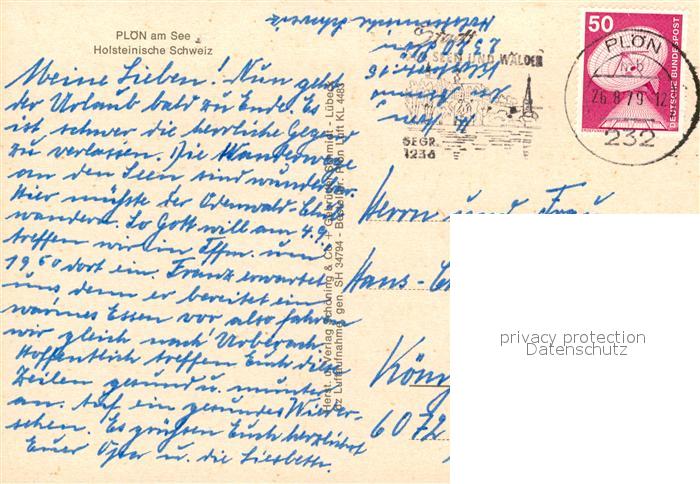 PLÖN am See
Holsteinische Schweiz
Meine Lieben! Nun geht
der Urlaub bald zu Ende. Es
ist schwer die herrliche Gegend
zu verlassen. Die Wanderwege
an den Seen sind wunderbar.
Hier müßte der Odenwald-Club
wandern. So Gott will am 4.9.
treffen wir in Ffm. um
1950 dort ein. Franz erwartet
uns denn er bereitet ein
warmes Essen vor also fahren
wir gleich nach Urberach
Hoffentlich treffen Euch die
Zeilen gesund u. munter
an. Auf ein gesundes Wieder-
sehen. Es grüßen Euch herzlichst
Euer Opa u. die Liesbeth.
Herst. u. Verlag Schöning & Co + Gebrüder Schmidt - Lübeck
Luftaufnahme gen. SH 34794 - Bestell-Nr. Plön Luft KL 4483
Holsteinische Schweiz
2320 Plön
SEEN UND WÄLDER
SEGR.
1236
50
DEUTSCHE BUNDESPOST
PLÖN
26.8.79-12
232
Herrn und Frau
Hans-
6072
privacy protection
Datenschutz